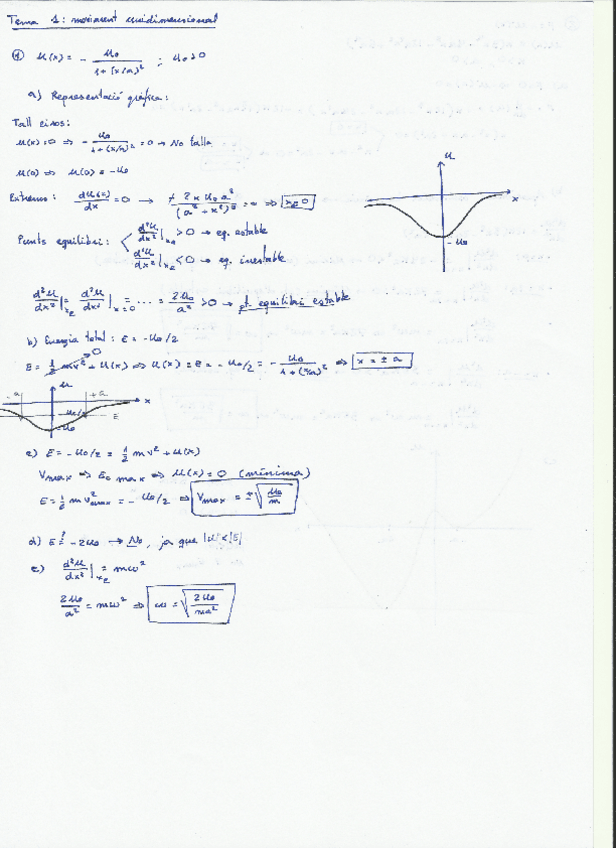 Tema 1: moviment unidimensional
① U(x) = - U₀/(1+(x/a)²) ; U₀>0
a) Representació gràfica:
Tall eixos:
U(x)=0 ⇒ - U₀/(1+(x/a)²) = 0 → No talla
U(0) ⇒ U(0) = -U₀
Extrems: dU(x)/dx = 0 → + 2x U₀ a²/(a²+x²)² = 0 ⇒ x_e=0
Punts equilibri: d²U/dx²|x_e > 0 → eq. estable
d²U/dx²|x_e < 0 → eq. inestable
U
x
-U₀
d²U/dx²|x_e = d²U/dx²|x=0 = ... = 2U₀/a² > 0 → pt. equilibri estable
b) Energia total: E = -U₀/2
E = ½ mv² + U(x) ⇒ U(x) = E = -U₀/2 = - U₀/(1+(x/a)²) ⇒ x = ± a
0
U
-a
+a
x
-U₀/2
E
-U₀
c) E = -U₀/2 = ½ mv² + U(x)
Vmax ⇒ Ec max ⇒ U(x) = 0 (mínima)
E = ½ m v²max = - U₀/2 ⇒ Vmax = ±√(U₀/m)
d) E ?= -2U₀ → No, ja que |U|<|E|
e) d²U/dx²|x_e = mω²
2U₀/a² = mω² ⇒ ω = √(2U₀/ma²)